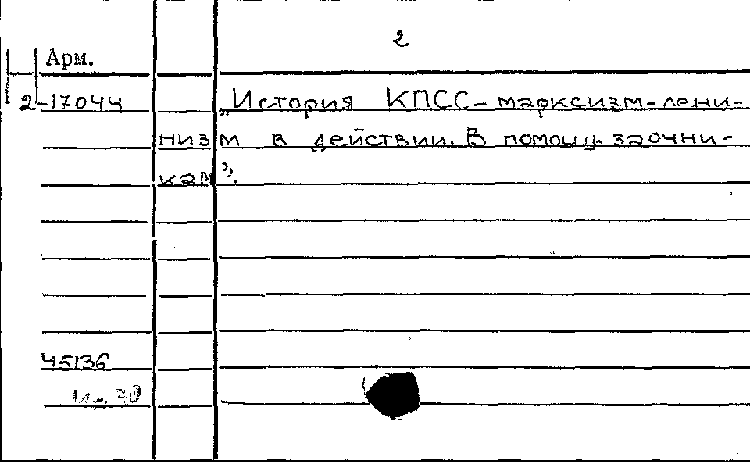 2
Арм.
2-17044 „История КПСС - марксизм-лени-
низм в действии. В помощь заочни-
кам”.
45136